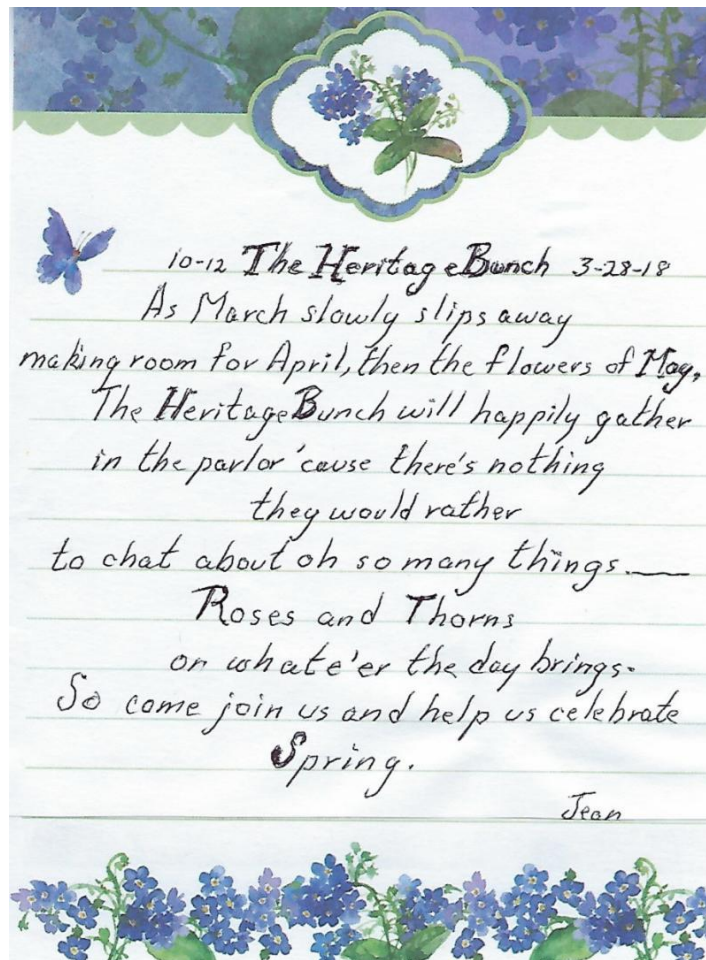 10-12 The Heritage Bunch 3-28-18
As March slowly slips away
making room for April, then the flowers of May,
The Heritage Bunch will happily gather
in the parlor 'cause there's nothing
they would rather
to chat about oh so many things.__
Roses and Thorns
or whate'er the day brings.
So come join us and help us celebrate
Spring.
Jean